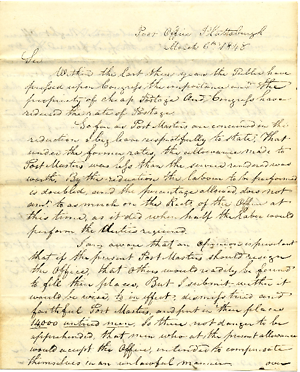 Post Office Plattsburgh
March 6th 1848
Sir
Within the last three years the Public have
pressed upon Congress the importance and the
propriety of cheap Postage And Congress have
reduced the rate of Postage
So far as Post Masters are concerned in the
reduction, I beg leave respectfully to state, That
under the former rates, the allowance made to
Post Masters was less than the service rendered was
worth. By the reduction the labour to be performed
is doubled, and the percentage allowed does not
amt to as much on the Rects of the Office at
this time, as it did when half the labor would
perform the duties required.
I am aware that an Opinion is prevalent
that if the present Post Masters should resign
the Office, that others would readily be found
to fill their places, But I submit whether it
would be wise, to in effect dismiss tried and
faithful Post Masters, and put in their places
14000 untried men. Is there not danger to be
apprehended, that men who at the present allowance
would accept the Office, intended to compensate
themselves in an unlawful manner
over